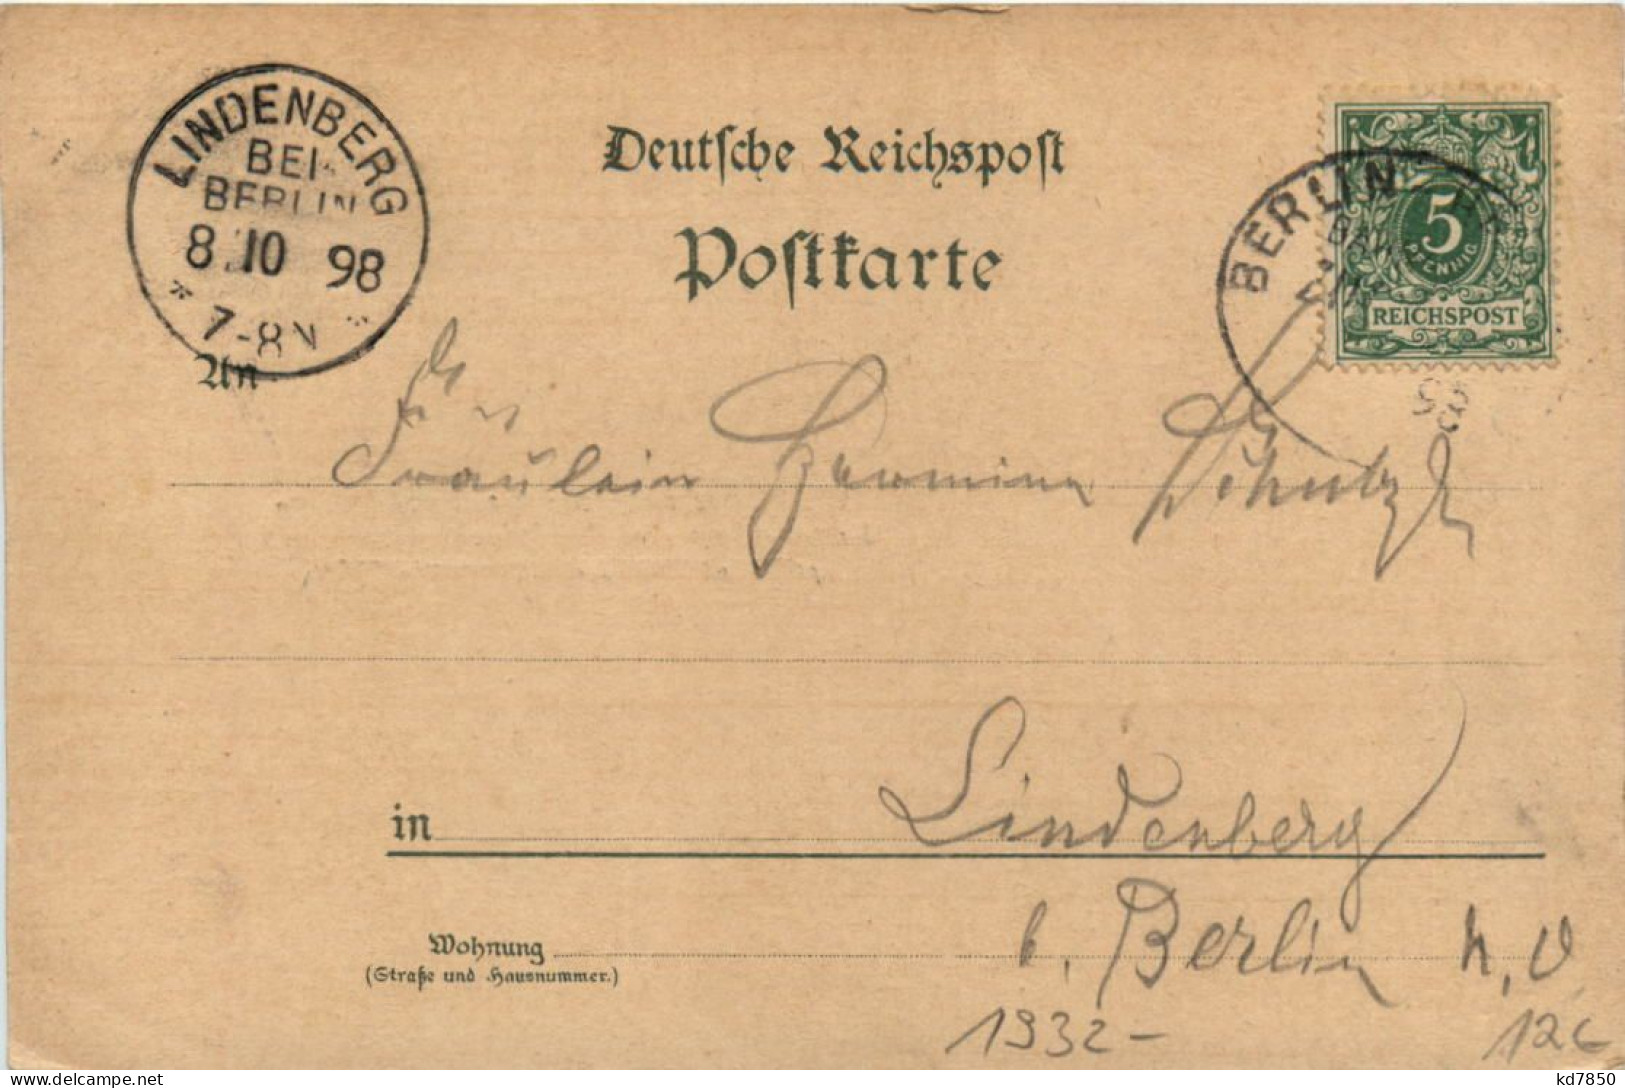 LINDENBERG
BEI
BERLIN
8 10 98
7-8N
Deutsche Reichspost
Postkarte
BERLIN
5
PFENNIG
REICHSPOST
98
An
Fräulein Hermine Schulze
in Lindenberg
Wohnung b. Berlin N.O
(Straße und Hausnummer.)
1932- 12€
kd7850